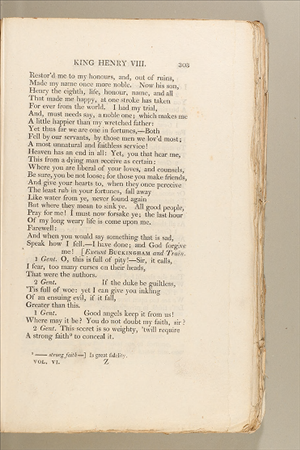 KING HENRY VIII. 303
Restor'd me to my honours, and, out of ruins,
Made my name once more noble. Now his son,
Henry the eighth, life, honour, name, and all
That made me happy, at one stroke has taken
For ever from the world. I had my trial,
And, must needs say, a noble one; which makes me
A little happier than my wretched father:
Yet thus far we are one in fortunes,—Both
Fell by our servants, by those men we lov'd most;
A most unnatural and faithless service!
Heaven has an end in all: Yet, you that hear me,
This from a dying man receive as certain:
Where you are liberal of your loves, and counsels,
Be sure, you be not loose; for those you make friends,
And give your hearts to, when they once perceive
The least rub in your fortunes, fall away
Like water from ye, never found again
But where they mean to sink ye. All good people,
Pray for me! I must now forsake ye; the last hour
Of my long weary life is come upon me.
Farewell:
And when you would say something that is sad,
Speak how I fell.—I have done; and God forgive
me! [Exeunt BUCKINGHAM and Train.
1 Gent. O, this is full of pity!—Sir, it calls,
I fear, too many curses on their heads,
That were the authors.
2 Gent. If the duke be guiltless,
'Tis full of woe: yet I can give you inkling
Of an ensuing evil, if it fall,
Greater than this.
1 Gent. Good angels keep it from us!
Where may it be? You do not doubt my faith, sir?
2 Gent. This secret is so weighty, 'twill require
A strong faith³ to conceal it.
³ —— strong faith—] Is great fidelity.
VOL. VI. Z